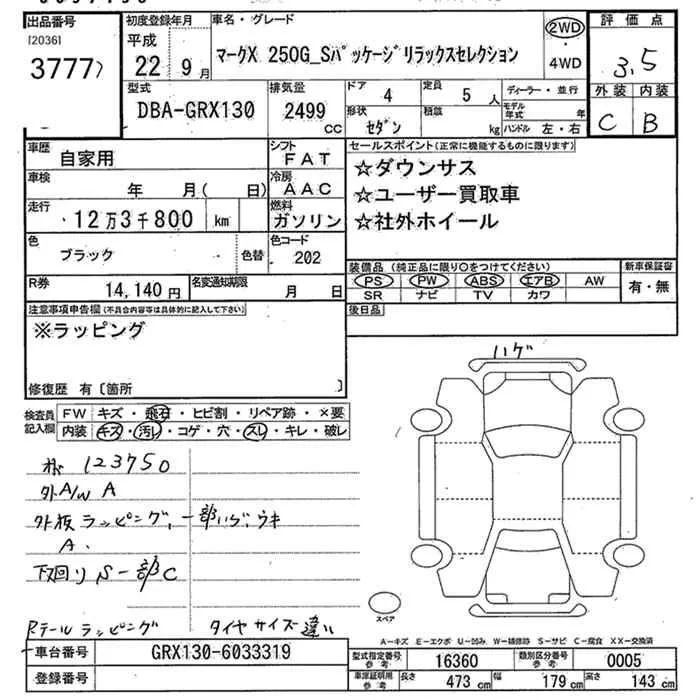 出品番号
[20361
3777)
初度登録年月
平成
22年 9月
車名・グレード
マークX 250G_Sパッケージリラックスセレクション
2WD
・
4WD
評価点
3.5
外装 内装
C B
型式
DBA-GRX130
排気量
2499
cc
ドア
4
定員
5 人
形状
セダン
積載
kg
ディーラー・並行
モデル
年式 年
ハンドル 左・右
車歴
自家用
シフト
FAT
車検
年 月( 日)
冷房
AAC
走行
12万3千800 km
燃料
ガソリン
色
ブラック
色替
色コード
202
R券
14,140円
名変通知期限
月 日
セールスポイント(正常に機能するものに限ります)
☆ダウンサス
☆ユーザー買取車
☆社外ホイール
装備品(純正品に限り○をつけてください)
PS PW ABS エアB AW
SR ナビ TV カワ
新車保証書
有・無
後日品
注意事項申告欄(不具合内容等は具体的に記入して下さい)
※ラッピング
修復歴 有〔箇所 〕
検査員
記入欄
FW キズ・飛石・ヒビ割・リペア跡・×要
内装 キズ・汚レ・コゲ・穴・スレ・キレ・破レ
123750
外A/W A
外板ラッピング、一部ハゲ、ウキ
A.
下回りS一部C
Rテールラッピング タイヤサイズ違い
ハゲ
スペア
A－キズ E－エクボ U－凹み W－補修跡 S－サビ C－腐食 XX－交換済
車台番号
GRX130-6033319
登録番号
型式指定番号
参考
16360
類別区分番号
参考
0005
車庫証明用
参考
長さ 473 cm 幅 179 cm 高さ 143 cm